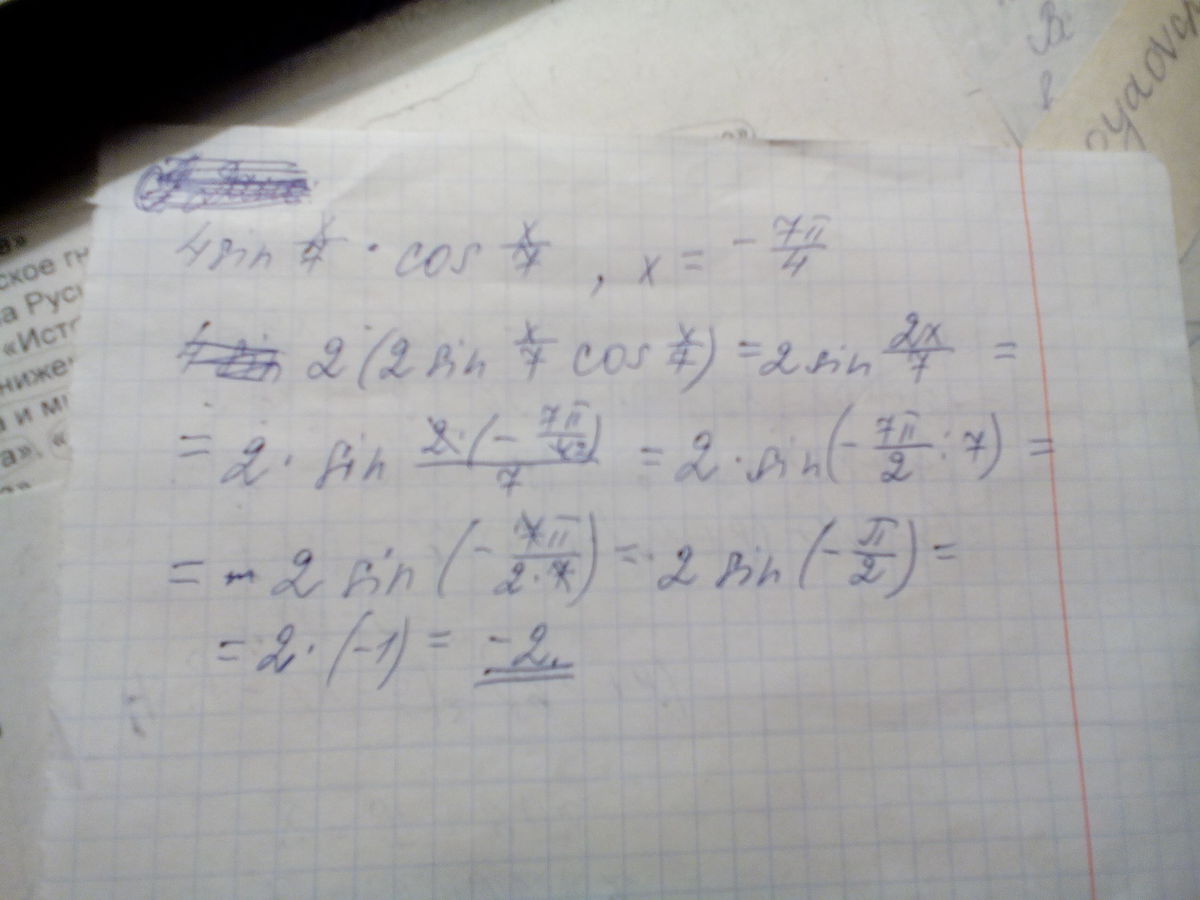 4 sin x/7 · cos x/7 , x = - 7π/4
2 (2 sin x/7 cos x/7) = 2 sin 2x/7 =
= 2 · sin 2·(- 7π/4)/7 = 2 · sin(- 7π/2 : 7) =
= 2 sin (- 7π/2·7) = 2 sin (- π/2) =
= 2 · (-1) = -2.
ское гн
а Русь
«Ист
ниже
а и м